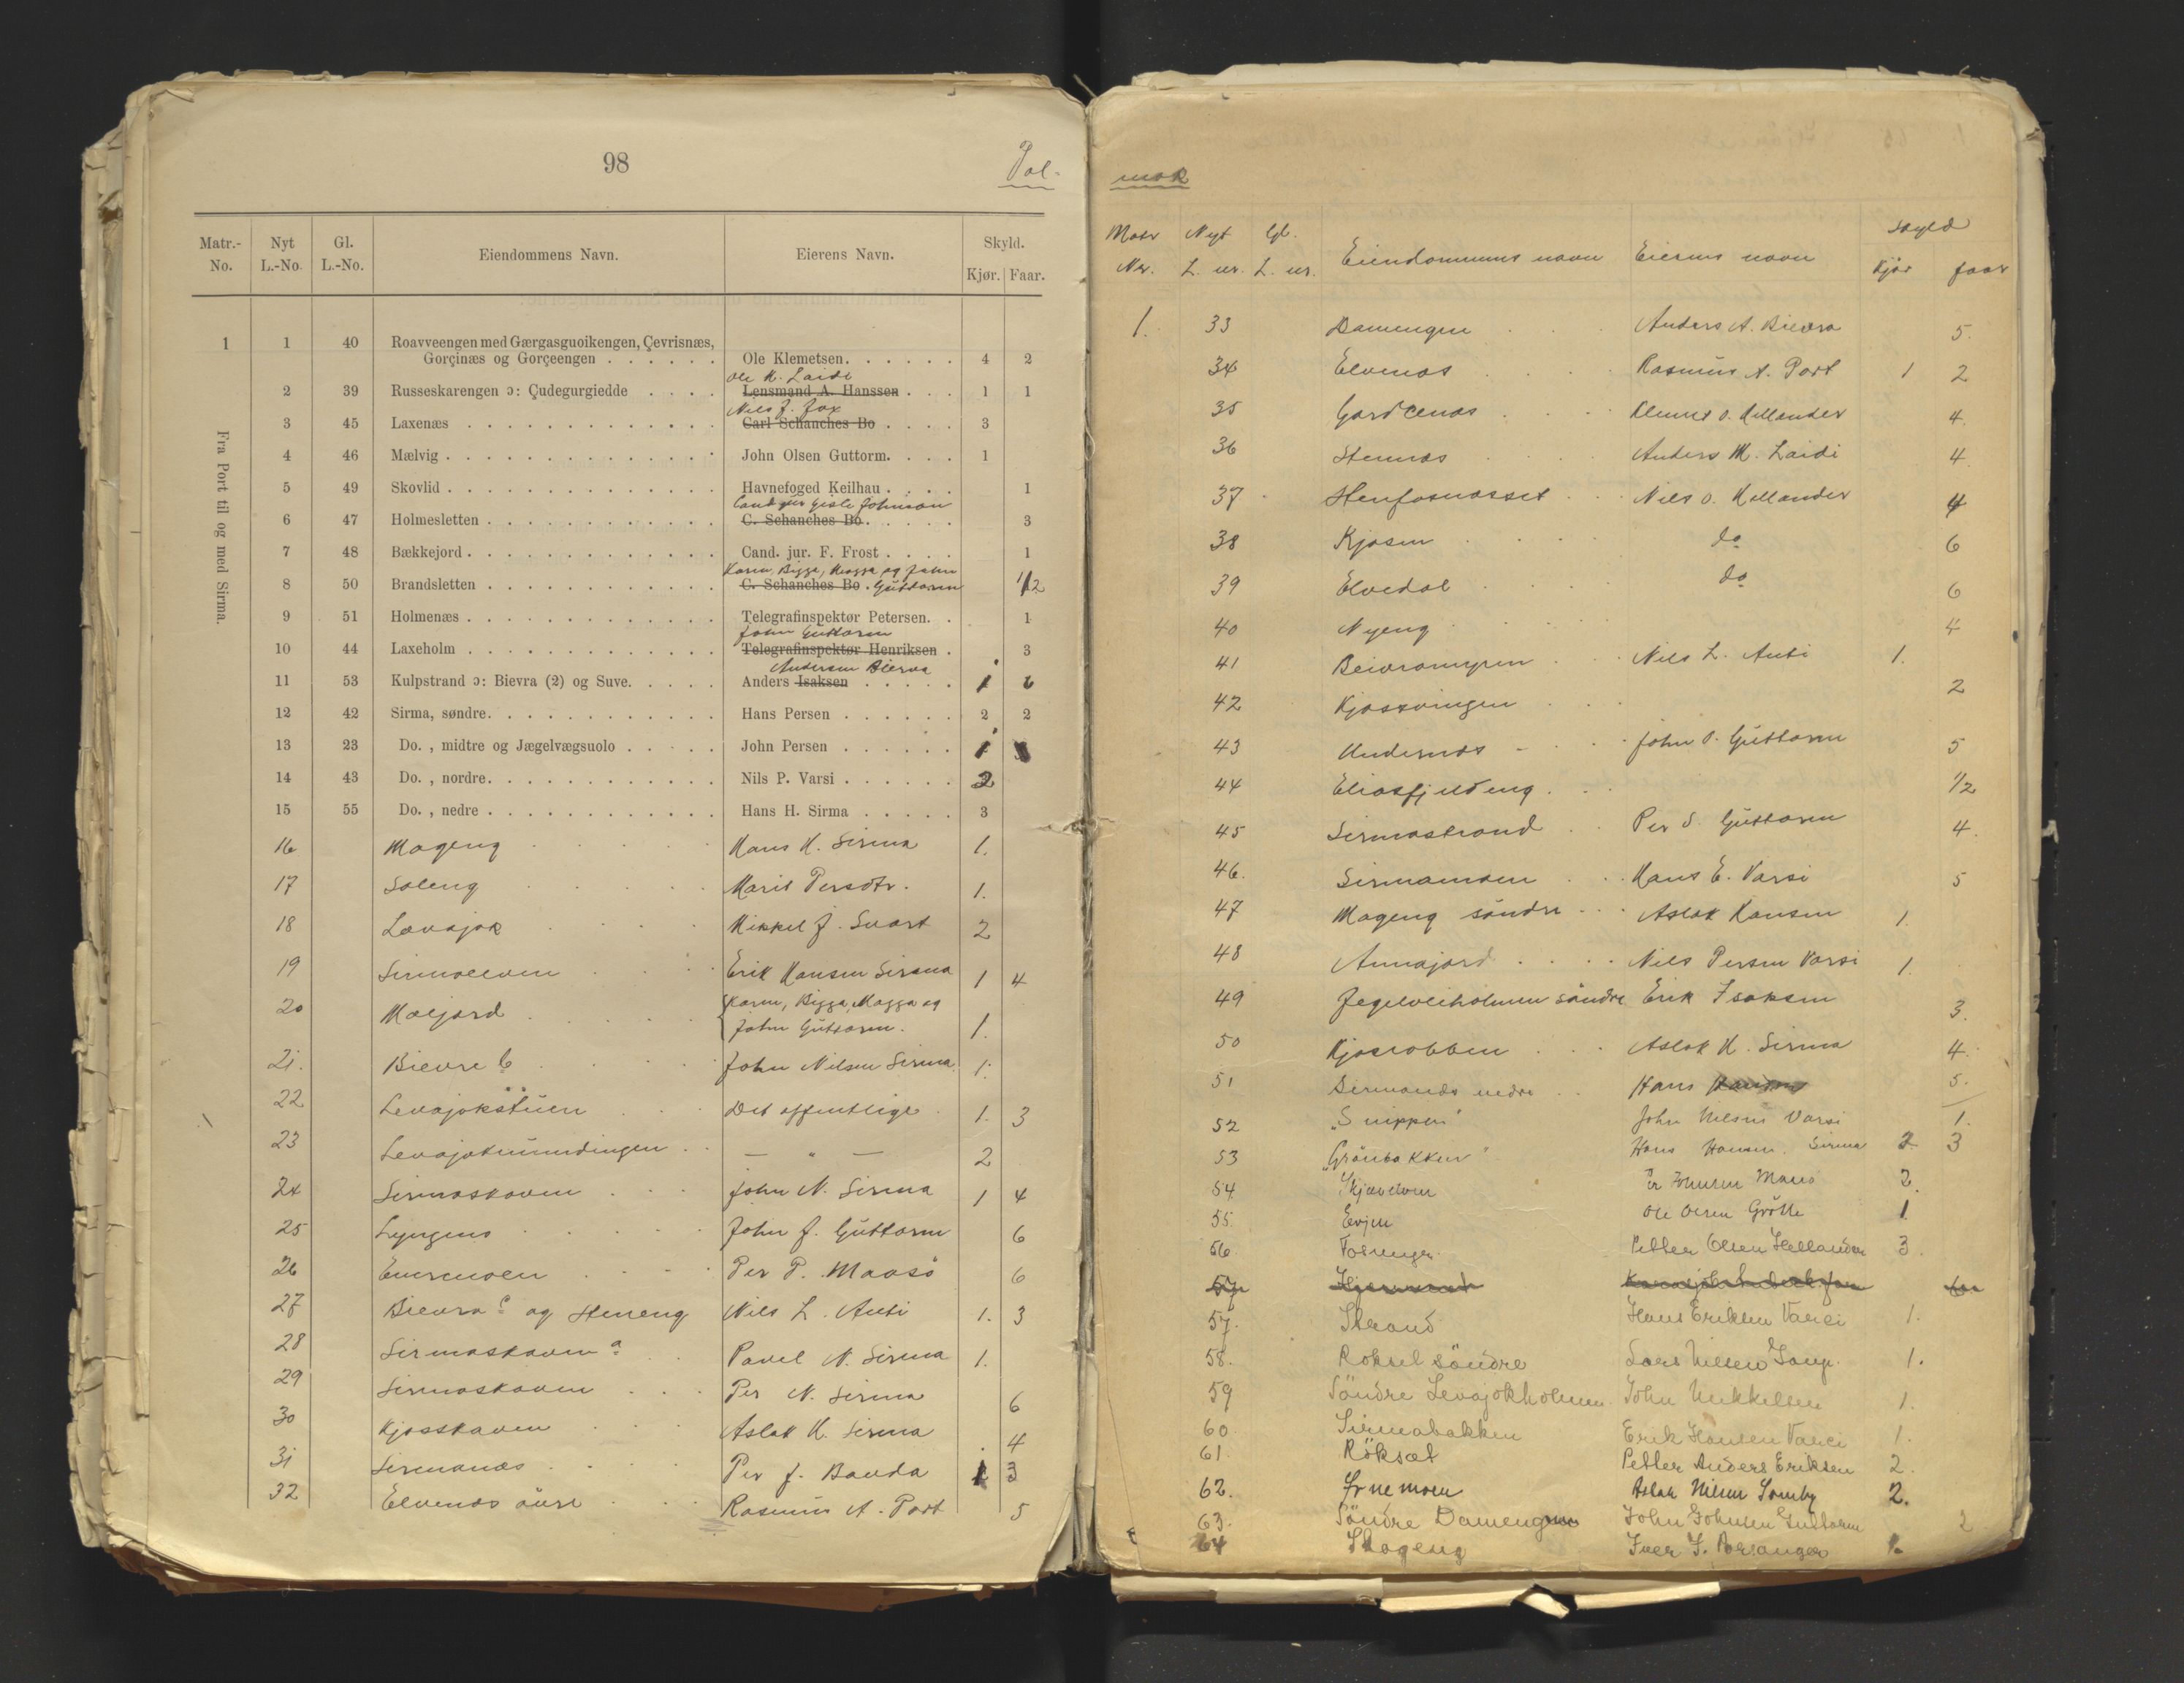 98
Pol-
Matr.-No. Nyt L.-No. Gl. L.-No. Eiendommens Navn. Eierens Navn. Skyld. Kjør. Faar.
Fra Port til og med Sirma.
1 1 40 Roavveengen med Gærgasguoikengen, Çevrisnæs,
Gorçinæs og Gorçeengen . . . . . . Ole Klemetsen. . . . . . 4 2
Ole H. Laidi
2 39 Russeskarengen ɔ: Çudegurgiedde . . . . Lensmand A. Hanssen . . . 1 1
Nils J. Fox
3 45 Laxenæs . . . . . . . . . . . . . Carl Schanches Bo . . . . 3
4 46 Mælvig . . . . . . . . . . . . . . John Olsen Guttorm. . . . 1
5 49 Skovlid . . . . . . . . . . . . . . Havnefoged Keilhau . . . . 1
Cand jur Gisle Johnson
6 47 Holmesletten . . . . . . . . . . . . C. Schanches Bo . . . . . 3
7 48 Bækkejord . . . . . . . . . . . . . Cand. jur. F. Frost . . . . 1
Karen, Bigga, Magga og John
8 50 Brandsletten . . . . . . . . . . . . C. Schanches Bo . Guttorm 1/2
9 51 Holmenæs . . . . . . . . . . . . . Telegrafinspektør Petersen. . 1
John Guttorm
10 44 Laxeholm . . . . . . . . . . . . . Telegrafinspektør Henriksen . 3
Andersen Bievra
11 53 Kulpstrand ɔ: Bievra (2) og Suve. . . . . Anders Isaksen . . . . . 1 6
12 42 Sirma, søndre. . . . . . . . . . . . Hans Persen . . . . . . 2 2
13 23 Do. , midtre og Jægelvægsuolo . . . . . John Persen . . . . . . 1
14 43 Do. , nordre. . . . . . . . . . . . Nils P. Varsi . . . . . . 2
15 55 Do. , nedre . . . . . . . . . . . . Hans H. Sirma . . . . . 3
16 Mageng Hans H. Sirma 1.
17 Soleng Marit Persdtr. 1.
18 Lavajok Mikkel J. Svart 2
19 Sirmaelven Erik Hansen Sirma 1 4
20 Moljord Karen, Bigga, Magga og
John Guttorm. 1.
21. Bievra b John Nilsen Sirma 1.
22 Levajokstuen Det offentlige 1. 3
23 Levajokmundingen — " — 2
24 Sirmaskoven John N. Sirma 1 4
25 Lyngnes John J. Guttorm 6
26 Per P. Maasö 6
27 Bievra c og Steneng Nils L. Anti 1. 3
28 Sirmaskoven a Pavel N. Sirma 1.
29 Sirmaskoven Per N. Sirma 6
30 Kjosskaven Aslak H. Sirma 4
31 Sirmanæs Per J. Banda 1 3
32 Elvenæs övre Rasmus A. Port 5
mak
Matr Nr. Nyt L. nr. Gl. L. nr. Eiendommens navn Eierens navn Skyld Kjör faar
1. 33 Damengen Anders A. Bievra 5.
34 Elvenæs Rasmus A. Port 1 2
35 Klemet O. Hellander 4.
36 Stennæs Anders M. Laidi 4
37 Stenfosnæsset Nils O. Hellander 4
38 Kjosen do 6
39 Elvedal do 6
40 Nyeng 4
41 Beivramyren Nils L. Anti 1.
42 Kjossvingen 2
43 Undernæs John O. Guttorm 5
44 Eliasfjeldeng 1/2
45 Sirmastrand Per S. Guttorm 4.
46. Sirmamoen Hans E. Varsi 5
47 Mageng söndre Aslak Hansen 1.
48 Annajord Nils Persen Varsi 1.
49 Jegelveiholmen söndre Erik Isaksen 3.
50 Kjosrabben Aslak H. Sirma 4.
51 Sirmanæs nedre Hans Hansen 5.
52 "Snippen" John Nilsen Varsi 1.
53 "Grönbakken" Hans Hansen Sirma 2 3
54 Skjævelven Per Johnsen Maaso 2.
55. Evjen Ole Olsen Grötte 1
56 Petter Olsen Hellander 3.
57
57. Strand Hans Eriksen Varsi 1.
58. Roksel söndre Lars Nilsen 1.
59 Söndre Levajokholmen John Mikkelsen 1.
60 Sirmabakken Erik Hansen Varsi 1.
61. Röksæt Petter Anders Eriksen 2.
62. Ornemoen Aslak Nilsen Somby 2.
63. Söndre Damengen John Johnsen Guttorm 2
64 Skogeng Iver I. Porsanger 1.